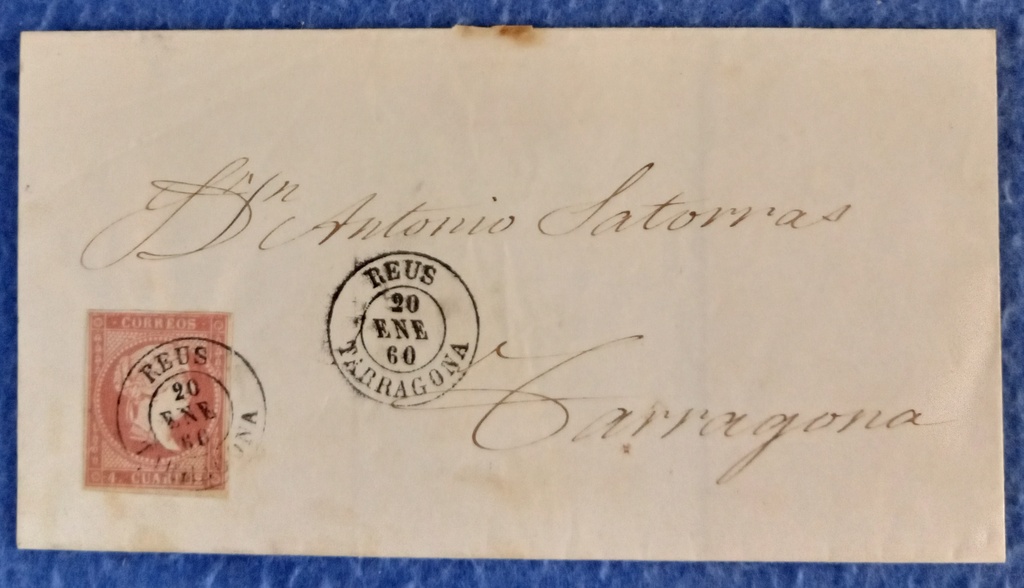 Drn Antonio Satorras
REUS
20
ENE
60
TARRAGONA
Tarragona
CORREOS
REUS
20
ENE
60
4. CUA